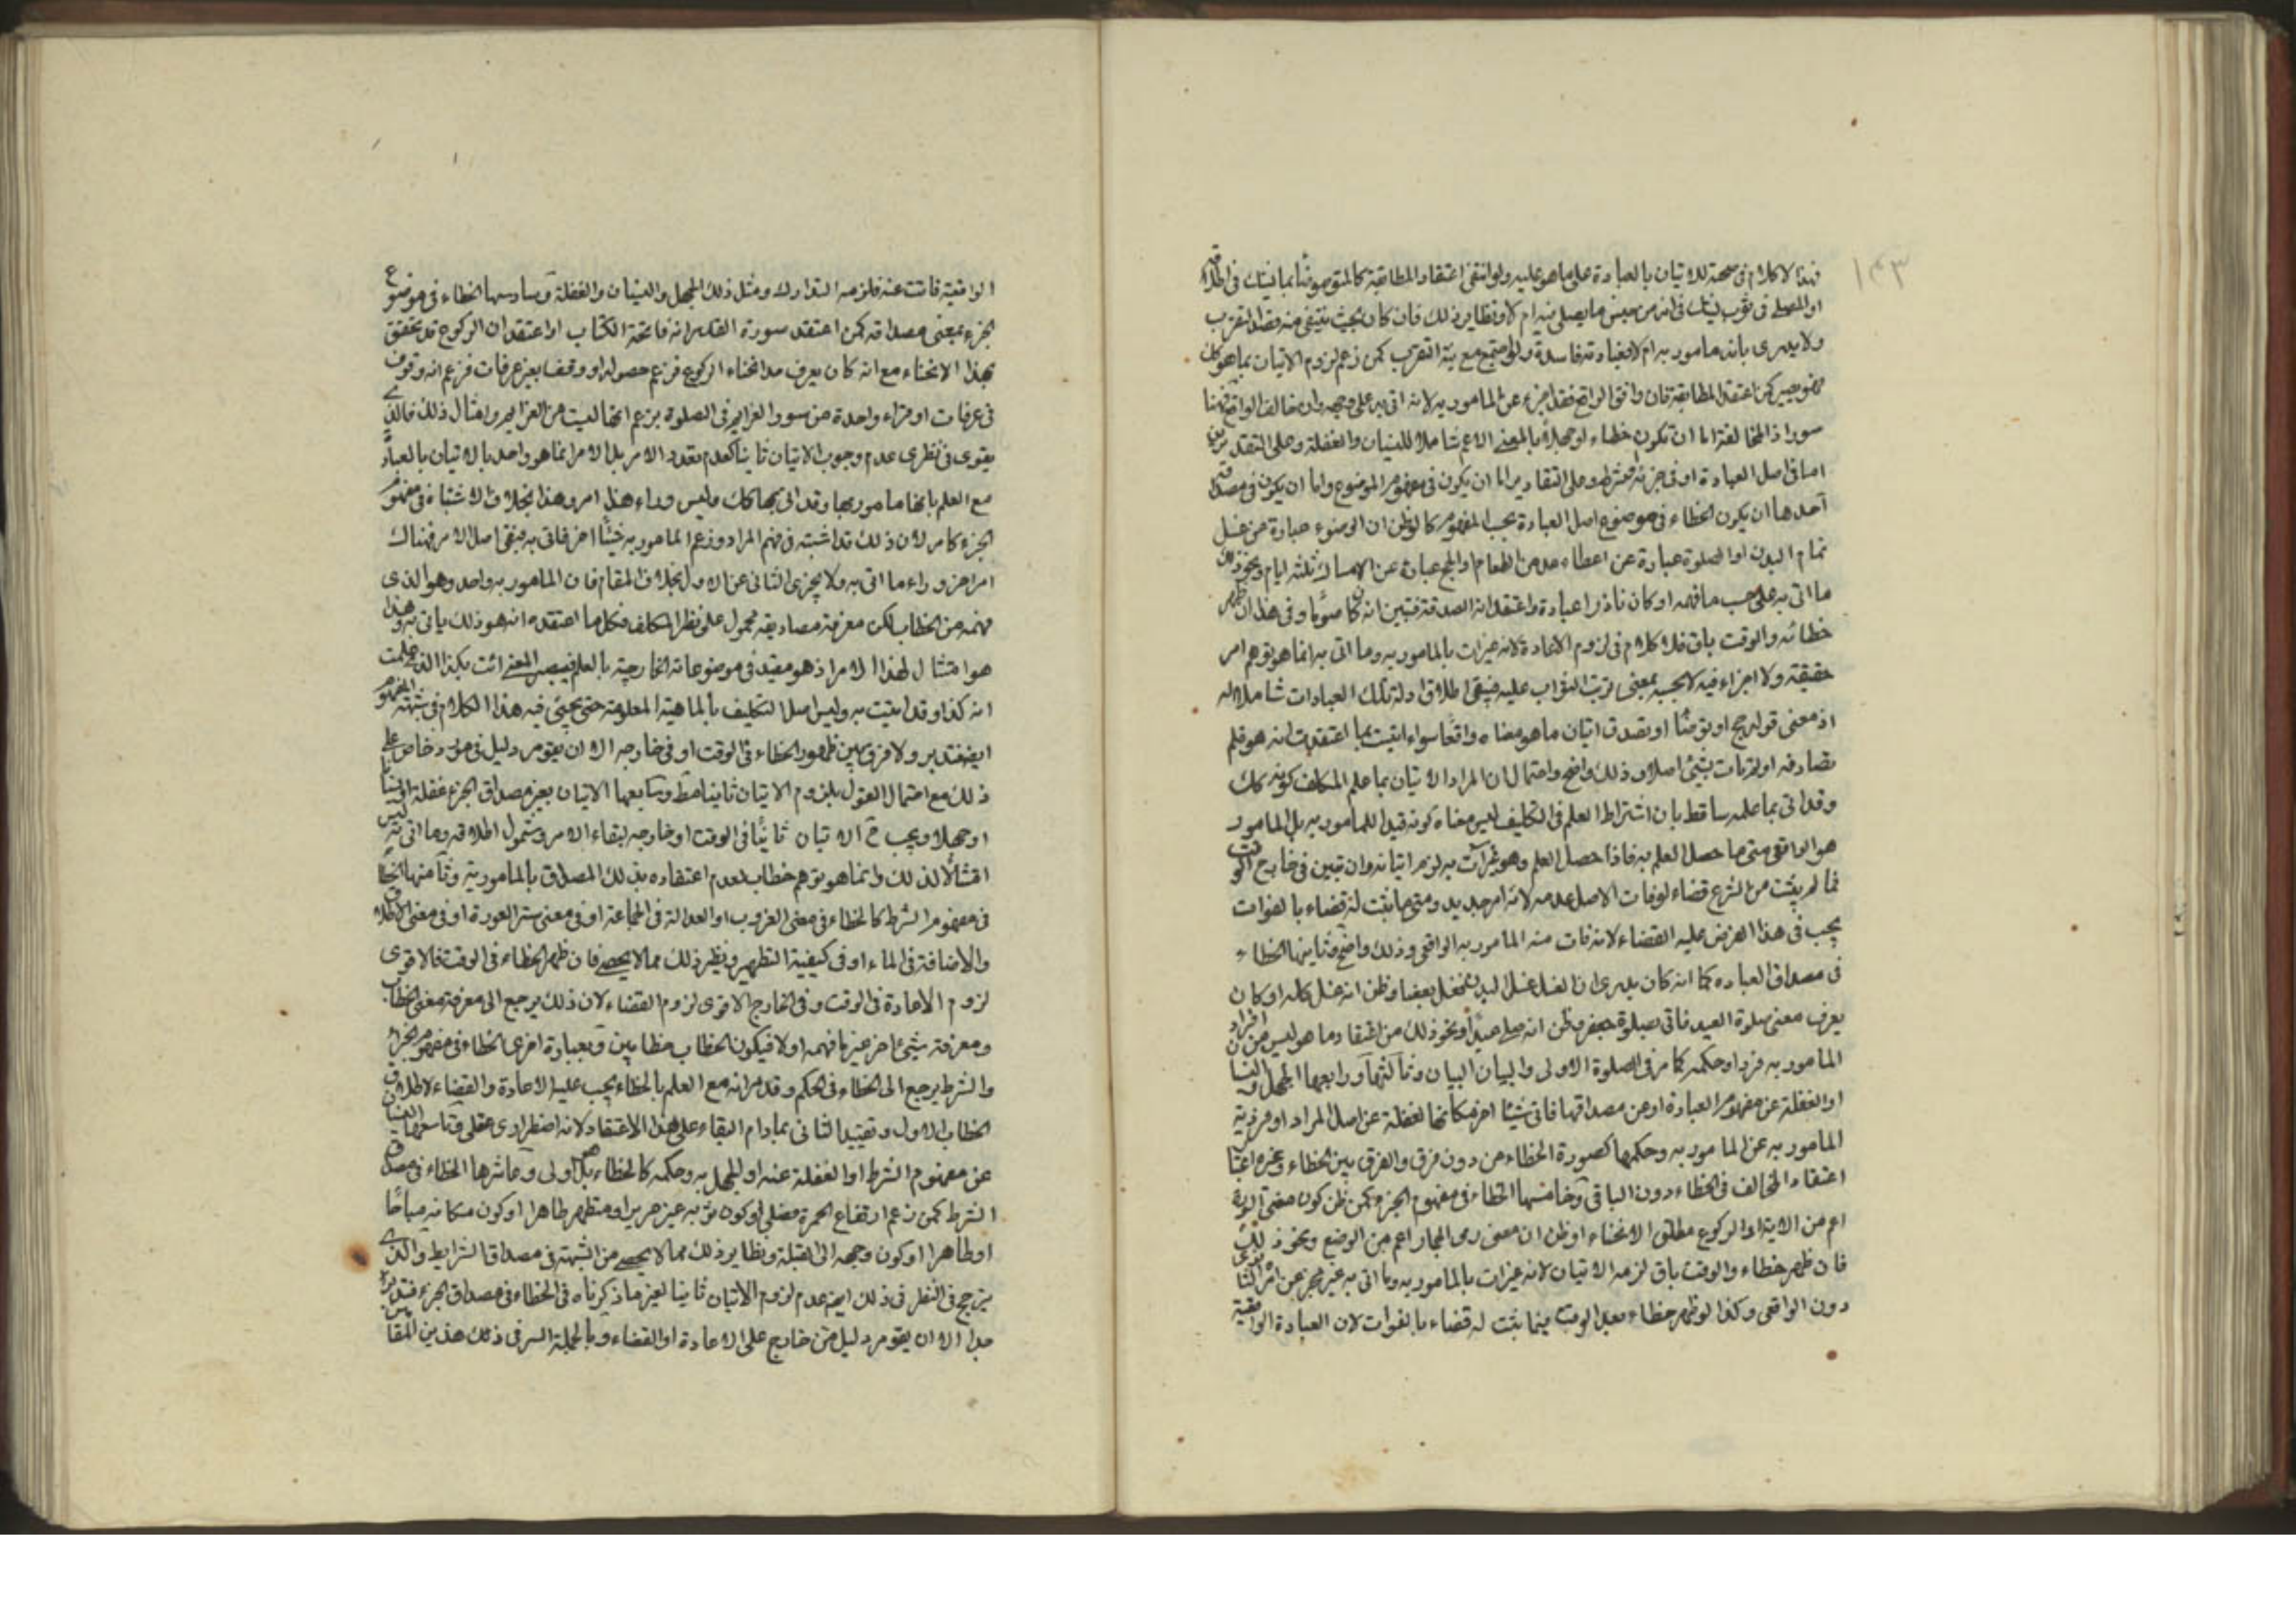 ١٤٣
فهذا لا كلام فى صحة للاتيان بالعبادة على ما هو عليه ولو انتفى اعتقاد المطابقة كالمتوضئ بما يشك فى اطلاقه
او المصلى فى ثوب يشك فى انه من جنس ما يصلى فيه ام لا ونظاير ذلك فان كان بحيث ينتفى منه قصد التقرب
ولا يدرى بانه مامور به ام لا فعبادته فاسدة ولو اجتمع مع نية التقرب كمن زعم لزوم الاتيان بما هو كك
فهو صحيح كمن اعتقد المطابقة فان وافق الواقع فقد اجزء عن المامور به لانه اتى به على وجهه وان خالف الواقع فهنا
صور اذ المخالفة اما ان تكون خطاء او جهلا بالمعنى الاعم شاملا للنسيان والغفلة وعلى التقديرين
اما فى اصل العبادة او فى جزئه او شرطه وعلى التقادير اما ان يكون فى مفهوم الموضوع واما ان يكون فى مصداقه
احدها ان يكون الخطاء فى موضوع اصل العبادة بحسب المفهوم كما لو ظن ان الوضوء عبادة عن غسل
تمام البدن او الصلوة عبارة عن اعطاء مد من الطعام والحج عبارة عن الامساك ثلثة ايام ونحو ذلك
ما اتى به على حسب ما فهمه او كان ناذرا عبادة واعتقد انه الصدقة فتبين انه كان صوما وفى هذا ان ظهر
خطائه والوقت باق فلا كلام فى لزوم الاعادة لانه غير ات بالمامور به وما اتى به انما هو توهم امر
حقيقة ولا اجزاء فيه لا بحسبه بمعنى ترتب الثواب عليه فيبقى اطلاق ادلة تلك العبادات شاملا له
اذ معنى قوله حج او توضئا او تصدق اتيان ما هو معناه واقعا سواء اتيت بما اعتقدت انه هو فلم
تصادفه او لم تات بشئ اصلا وذلك واضح واحتمال ان المراد الاتيان بما علم المكلف كونه كك
وقد اتى بما علمه ساقط بان اشتراط العلم فى التكليف ليس معناه كونه قيدا للمامور به بل المامور
هو الواقعى متى ما حصل العلم به فاذا حصل العلم وهو غير ات به لزم اتيانه وان تبين فى خارج الوقت
فما لم يثبت من الشرع قضاء لو فات الاصل عدمه لانه امر جديد ومتى ما ثبت له قضاء بالفوات
يجب فى هذا الفرض عليه القضاء لانه فات منه المامور به الواقعى وذلك واضح وثانيها الخطاء
فى مصداق العباده كما انه كان يدرى ان الغسل غسل البدن فغسل بعضا وظن انه غسل كله او كان
يعرف معنى صلوة العيد فاتى بصلوة جعفر وظن انه صلى عيدا ونحو ذلك من اعتقاد ما هو ليس من افراد
المامور به فردا وحكمه كما مر فى الصلوة الاولى والبيان البيان وثالثها ورابعها الجهل والنسيان
او الغفلة عن مفهوم العبادة او عن مصداقها فاتى شيئا اخر مكانها لغفلة عن اصل المراد او فردية
المامور به عن المامور به وحكمها كصورة الخطاء من دون فرق والفرق بين الخطاء وغيره اعتبار
اعتقاد المخالف فى الخطاء دون الباقى وخامسها الخطاء فى مفهوم الجزء كمن ظن كون معنى السورة
اعم من الاية او الركوع مطلق الانحناء او ظن ان معنى رمى الجمار اعم من الوضع ونحو ذلك
فان ظهر خطاء والوقت باق لزمه الاتيان لانه غير ات بالمامور به وما اتى به غير مجز عن
دون الواقعى وكذا لو ظهر خطاء بعد الوقت فيما ثبت له قضاء بالفوات لان العبادة الواقعية
الواقعية فاتت عنه فلزمه التدارك ومثل ذلك الجهل والنسيان والغفلة وسادسها الخطاء فى موضوع
الجزء بمعنى مصداقه كمن اعتقد سورة القدر انه فاتحة الكتاب او اعتقد ان الركوع قد تحقق
بهذا الانحناء مع انه كان يعرف مد انحناء الركوع فزعم حصوله او وقف بغير عرفات فزعم انه وقوف
فى عرفات او قراء واحدة من سور العزايم فى الصلوة بزعم انها ليست من العزايم وامثال ذلك فالذى
يقوى فى نظرى عدم وجوب الاتيان ثانيا لعدم تعدد الامر بل الامر انما هو واحد بالاتيان بالعبادة
مع العلم بانها مامور بها وقد اتى بها كك وليس وراء هذا امر وهذا بخلاف الاشتباه فى مفهوم
الجزء كما مر لان ذلك قد اشتبه فى فهم المراد وزعم المامور به شيئا اخر فاتى به فبقى اصل الامر فهناك
امر اخر وراء ما اتى به ولا يجزى الثانى عن الاول بخلاف المقام فان المامور به واحد وهو الذى
فهمه من الخطاب لكن معرفة مصاديقه محمول على نظر المكلف فكل ما اعتقده انه هو ذلك ياتى به وهذا
هو امتثال لهذا الامر اذ هو مقيد فى موضوعاته الخارجية بالعلم فيصير المعنى ائت بكذا الذى علمت
انه كذا وقد اتيت به وليس اصل التكليف بالماهية المعلومة حتى يجيئ فيه هذا الكلام فى شبهة المفهوم
ايضا فتدبر ولا فرق بين ظهور الخطاء فى الوقت او فى خارجه الا ان يقوم دليل فى مورد خاص على
ذلك مع احتمال القول بلزوم الاتيان ثانيا مط وسابعها الاتيان بغير مصداق الجزء غفلة او نسيانا
او جهلا ويجب ح الاتيان ثانيا فى الوقت او خارجه لبقاء الامر وشمول اطلاقه وما اتى به ليس
امتثالا لذلك وانما هو توهم خطاب لعدم اعتقاده بذلك المصداق بالمامور به وثامنها الخطاء
فى مفهوم الشرط كالخطاء فى معنى الغروب او العدالة فى الجماعة او فى معنى ستر العورة او فى معنى الاطلاق
والاضافة فى الماء او فى كيفية التطهير ونظير ذلك مما لا يحصى فان ظهر الخطاء فى الوقت فالاقوى
لزوم الاعادة فى الوقت وفى الخارج الاقوى لزوم القضاء لان ذلك يرجع الى معرفة معنى الخطاب
ومعرفة شيئ اخر غير ما فهمه اولا فيكون الخطاب خطابين وبعبارة اخرى الخطاء فى مفهوم الجزء
والشرط يرجع الى الخطاء فى الحكم وقد مر انه مع العلم بالخطاء يجب عليه الاعادة والقضاء لاطلاق
الخطاب الاول وتقييد الثانى بمادام البقاء على هذا الاعتقاد لانه اضطرارى عقلى وتاسعها النسيان
عن مفهوم الشرط او الغفلة عنه او الجهل به وحكمه كالخطاء بل هو اولى وعاشرها الخطاء فى مصداق
الشرط كمن زعم ارتفاع الحمرة فصلى او كون ثوبه غير حرير او متطهر طاهرا او كون مكانه مباحا
او طاهرا او كون وجهه الى القبلة ونظاير ذلك مما لا يحصى من الشبهة فى مصداق الشرايط والذى
يترجح فى النظر فى ذلك ايضا عدم لزوم الاتيان ثانيا لعين ما ذكرناه فى الخطاء فى مصداق الجزء فتدبر
جدا الا ان يقوم دليل من خارج على الاعادة او القضاء وبالجملة السر فى ذلك هذين المقامين